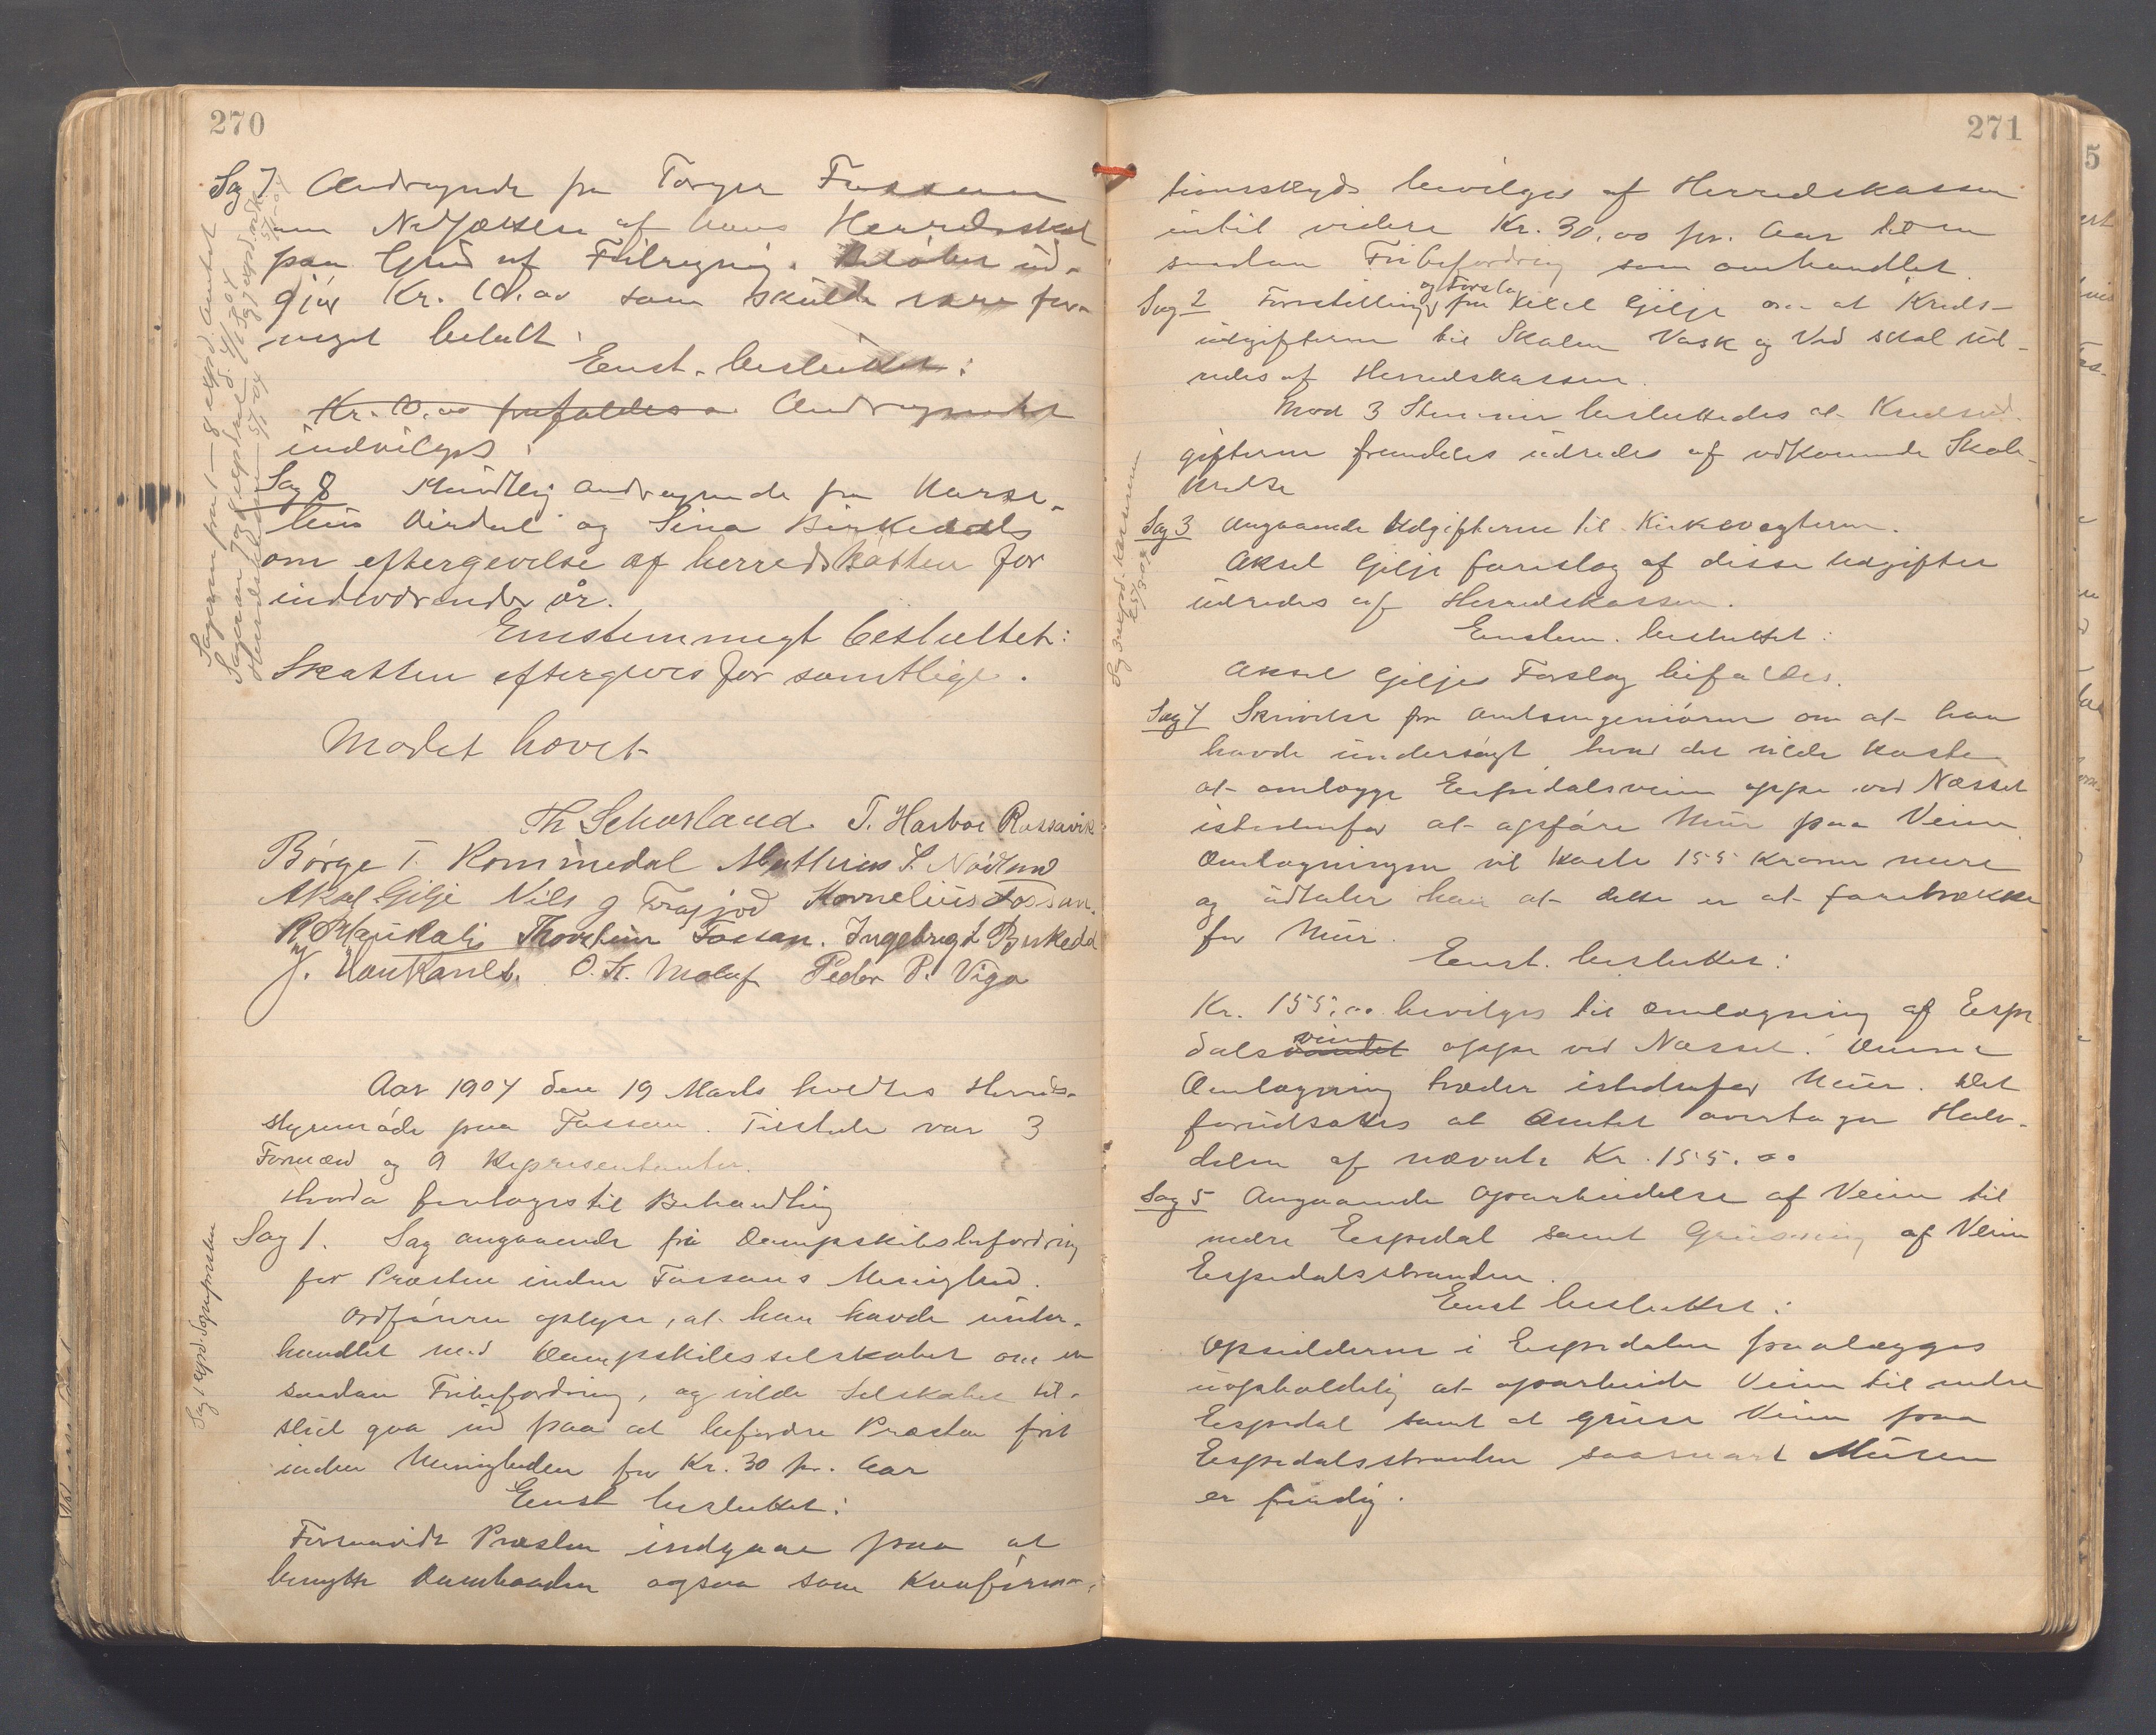 270
Sag 7 Andragende fra Torger Fossan
om Nedsættelse af hans Herredsskat
paa Grund af Feilregning. Beløbet ud-
gjør Kr. 10.00 som skulde være for-
meget betalt.
Enst. besluttet:
Kr. 10,00 frafaldes Andragendet
indvilges.
Sag 8 Mundtlig andragende fra Karse-
lius Virdal og Sina Birkedals
om eftergevelse af herredskatten for
indeværende år.
Enstemmigt besluttet:
Skatten eftergives for samtlige.
Mødet hævet
Th Scheveland. T. Harboe Rossavik
Børge T. Rommedal Mathias S. Nødland
Aksel Gilje Nils g Forsjod Kornelius Fossan.
R Haukalis Thorstein Fossan. Ingebrigt Birkedal
J. Haukanes. O. K. Molaf Peder P. Viga
Aar 1904 den 19 Marts holdtes Herreds-
styremøde paa Fossan. Tilstede var 3
Formænd og 9 Repræsentanter.
Hvorda foretoges til Behandling
Sag 1. Sag angaaende fri Dampskibsbefordring
for Præsten inden Fossans Menighed.
Ordføreren oplyste, at han havde under-
handlet med Dampskibsselskabet om en
saadan Fribefordring, og vilde Selskabet til-
slut gaa ind paa at befordre Præsten frit
inden Menigheden for Kr. 30 pr. Aar
Enst besluttet:
Forsaavidt Præsten indgaar paa at
benytte Dambaaden ogsaa som Konfirma-
Sagerne fra 1 - 8 expd. Amtet
Sag 1 expd. Sognepresten
271
tionsskyds bevilges af Herredskassen
indtil videre Kr. 30,00 pr. Aar til en
saadan Fribefordring som omhandlet.
Sag 2 Forestilling og Forslag fra Aksel Gilje om at Kreds-
udgifterne til Skolen Vask og Ved skal ud-
redes af Herredskassen.
Mod 3 Stemmer besluttedes at Kredsud-
gifterne fremdeles udredes af vedkommende Skole-
kredse
Sag 3 Angaaende Udgifterne til Kirkevagterne.
Aksel Gilje foreslog af disse Udgifter
udredes af Herredskassen.
Enstem. besluttet:
Aksel Giljes Forslag bifaldes.
Sag 4 Skrivelse fra Amtsingeniøren om at han
havde undersøgt hvad det vilde koste
at omlægge Espedalsveien oppe ved Næsset
istedenfor at opføre Mur paa Veien.
Omlægningen vil koste 155 Kroner mere
og udtaler han at dette er at foretrække
for Mur.
Enst. besluttet:
Kr. 155,00 bevilges til Omlægning af Espe
dalsvandet veien oppe ved Næsset. Denne
Omlægning træder istedenfor Mur. Det
forudsættes at Amtet overtager Halv-
delen af nævnte Kr. 155.00
Sag 5 Angaaende Oparbeidelse af Veien til
nedre Espedal samt Grusning af Veien
Espedalsstranden.
Enst besluttet:
Opsidderne i Espedalen paalægges
uopholdelig at oparbeide Veien til nedre
Espedal samt at gruse Veien paa
Espedalsstranden saasnart Muren
er færdig.
5